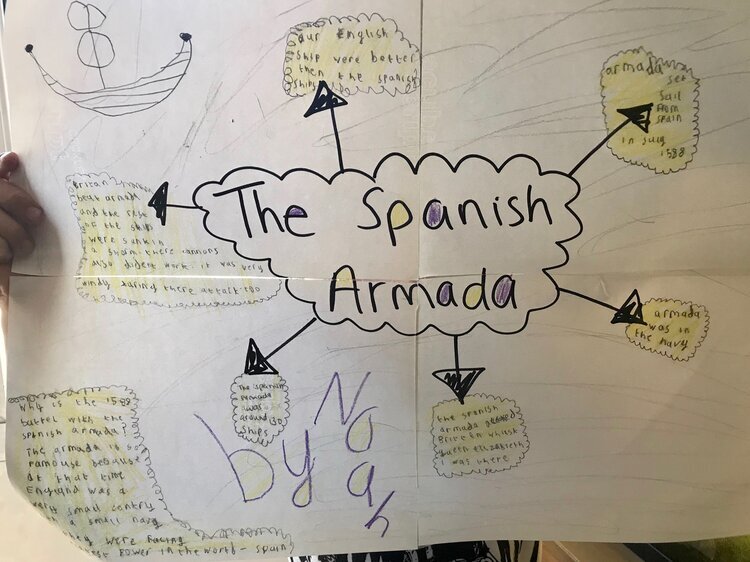 our English
ship were better
then the spanish
ships
armada
set
sail
from
spain
in July
1588
britan
beat armada
and the rest
of the ships
were sunkin
a storm. there cannons
also dident work. it was very
windy during there attack too
The Spanish
Armada
armada
was in
the navy
The spanish
armada
was
around
130
ships
the spanish
armada
Briten whilst
queen elizabeth
I was there
by Noah
Why is the 1588
battel with the
spanish armada?
The armada is so
famouse because
at that time
England was a
very small contry
with a small navy
they were facing
Power in the world - spain